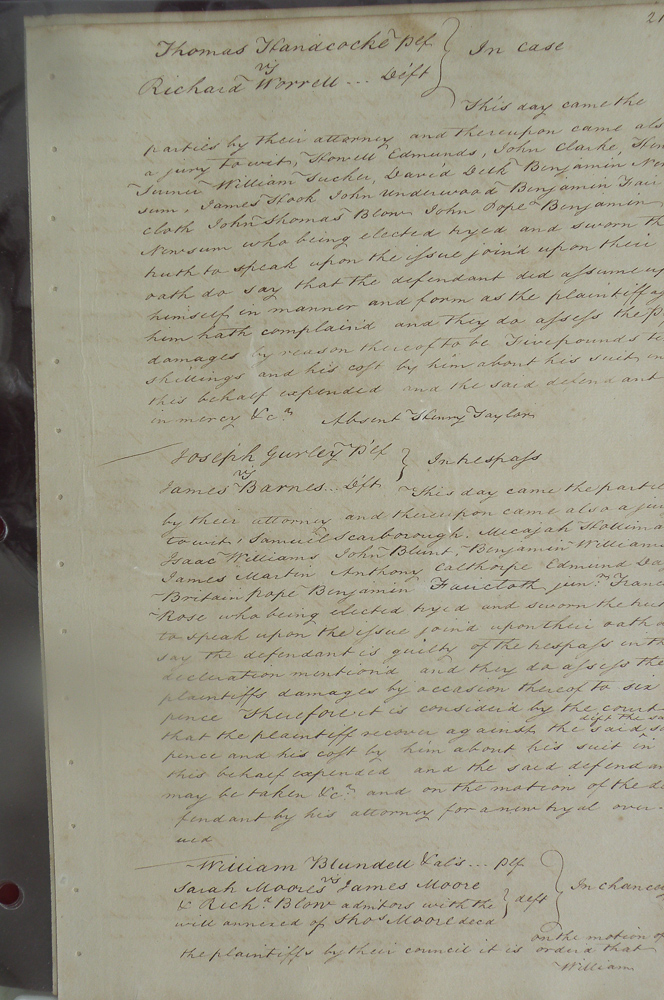 21
Thomas Handcocke plf } In case
vs
Richard Worrell ... Deft
This day came the
parties by their attorney and thereupon came als
a jury to wit, Howell Edmunds, John Clarke, Hen
Turner William Tucker, David Delk Benjamin New
sum, James Hook John Underwood Benjamin Fair
cloth John Thomas Blow John Pope Benjamin
Newsum who being elected tryed and sworn th
truth to speak upon the issue joind upon their
oath do say that the defendant did assume up
himself in manner and form as the plaintiff ag
him hath complaind and they do assess the p
damages by reason thereof to be Five pounds te
shillings and his cost by him about his suit in
this behalf expended and the said defendant
in mercy &c.a Absent Henry Taylor
Joseph Gurley Plf } In trespass
vs
James Barnes .. Deft This day came the partie
by their attorney and thereupon came also a jur
to wit, Samuel Scarborough, Micajah Hollima
Isaac Williams, John Blunt, Benjamin Williams
James Martin Anthony Calthorpe Edmund Da
Britain Pope Benjamin Faircloth jun.r Franc
Rose who being elected tryed and sworn the tru
to speak upon the issue joind upon their oath d
say the defendant is guilty of the trespass in th
decleration mention'd and they do assess the
plaintiffs damages by occasion thereof to six
pence Therefore it is consider'd by the court
that the plaintiff recover against the said deft the sa s
pence and his cost by him about his suit in
this behalf expended and the said defendan
may be taken &c.a and on the motion of the de
fendant by his attorney for a new tryal over-
uled
William Blundell & al's ... plf
vs
Sarah Moore James Moore
& Rich.d Blow admitors with the } deft } In chancery
will annexed of Tho.s Moore decd
on the motion of
the plaintiffs by their council it is orderd that
William